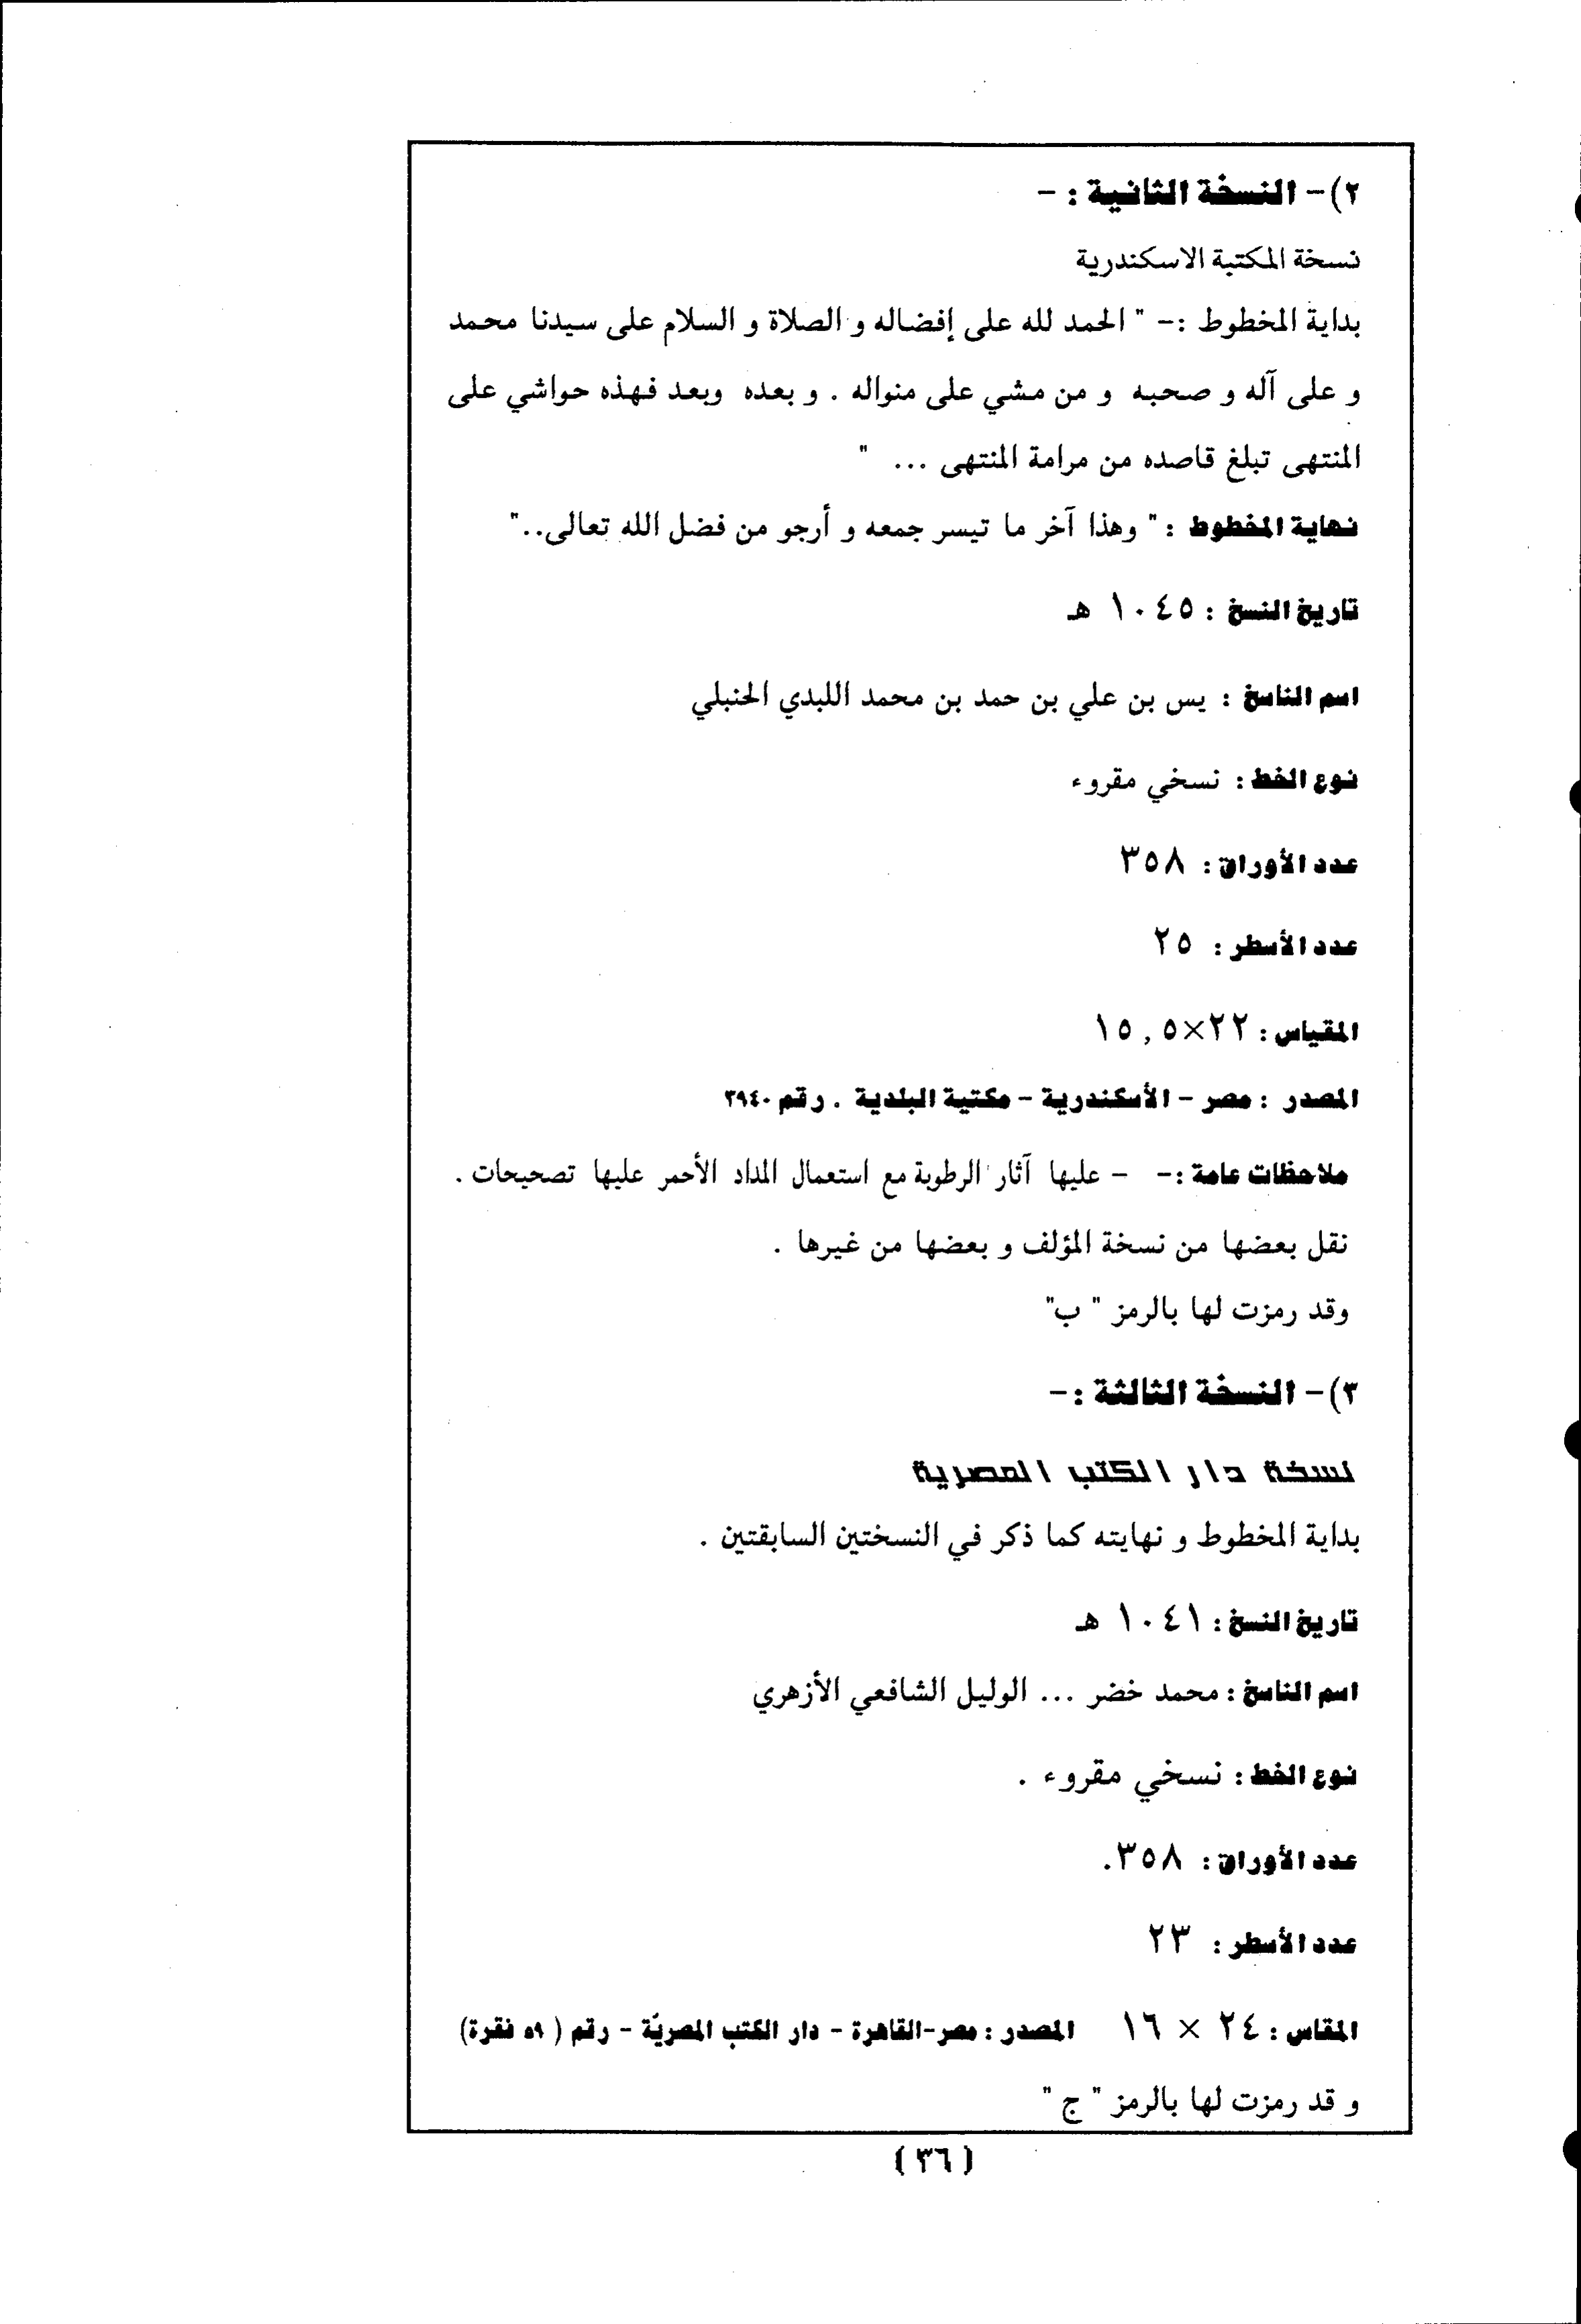 ٢) - النسخة الثانية : -
نسخة المكتبة الاسكندرية
بداية المخطوط :- " الحمد لله على إفضاله و الصلاة و السلام على سيدنا محمد
و على آله و صحبه و من مشي على منواله . و بعده وبعد فهذه حواشي على
المنتهى تبلغ قاصده من مرامة المنتهى ... "
نهاية المخطوط : " وهذا آخر ما تيسر جمعه و أرجو من فضل الله تعالى.."
تاريخ النسخ : ١٠٤٥ هـ
اسم الناسخ : يس بن علي بن حمد بن محمد اللبدي الحنبلي
نوع الخط : نسخي مقروء
عدد الأوراق : ٣٥٨
عدد الأسطر : ٢٥
المقياس : ٢٢×١٥,٥
المصدر : مصر - الأسكندرية - مكتبة البلدية . رقم ٣٩٤٠
ملاحظات عامة :- - عليها آثار الرطوبة مع استعمال المداد الأحمر عليها تصحيحات .
نقل بعضها من نسخة المؤلف و بعضها من غيرها .
وقد رمزت لها بالرمز " ب"
٣) - النسخة الثالثة :-
نسخة دار الكتب المصرية
بداية المخطوط و نهايته كما ذكر في النسختين السابقتين .
تاريخ النسخ : ١٠٤١ هـ
اسم الناسخ : محمد خضر ... الوليل الشافعي الأزهري
نوع الخط : نسخي مقروء .
عدد الأوراق : ٣٥٨.
عدد الأسطر : ٢٣
المقاس : ٢٤ × ١٦ المصدر : مصر-القاهرة - دار الكتب المصريّة - رقم ( ٥٩ فقرة)
و قد رمزت لها بالرمز " ج "
( ٣٦ )